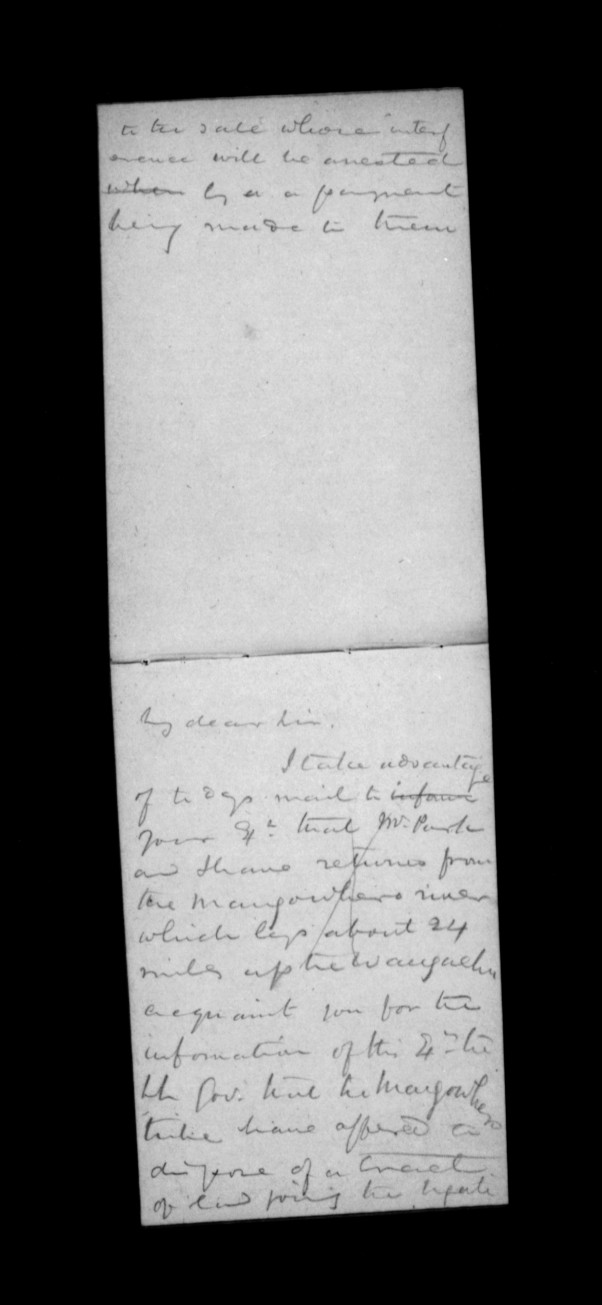 to the sale whose interf
erence will be arrested
when by a a payment
being made to them
My dear Sir.
I take advantage
of to days mail to inform
your that Mr. Park
and I have returned from
the Mangowhero river
which lays about 24
miles up the Wangaehu
acquaint you for the
information of His the
Lt. Gov. that the Mangowhero
tribe have offered
dispose of a tract
of land joining the Ngati